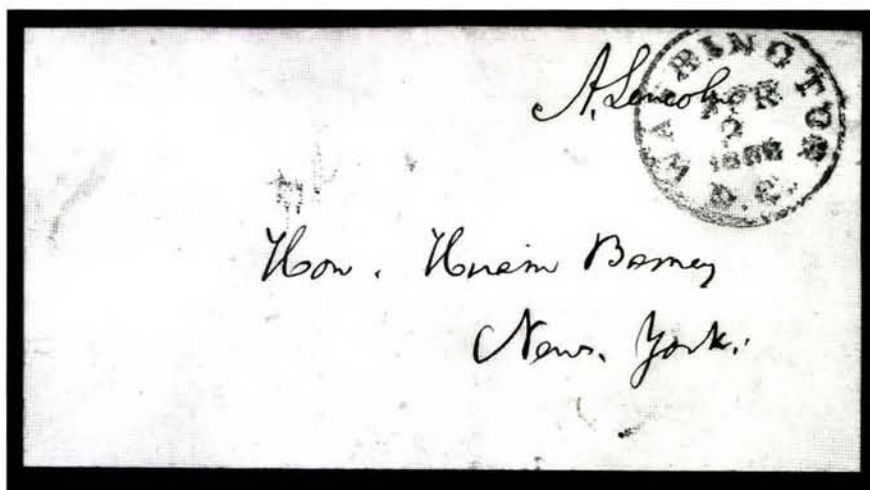 A. Lincoln
WASHINGTON D.C.
APR
2
Hon. Hiram Barney
New. York.